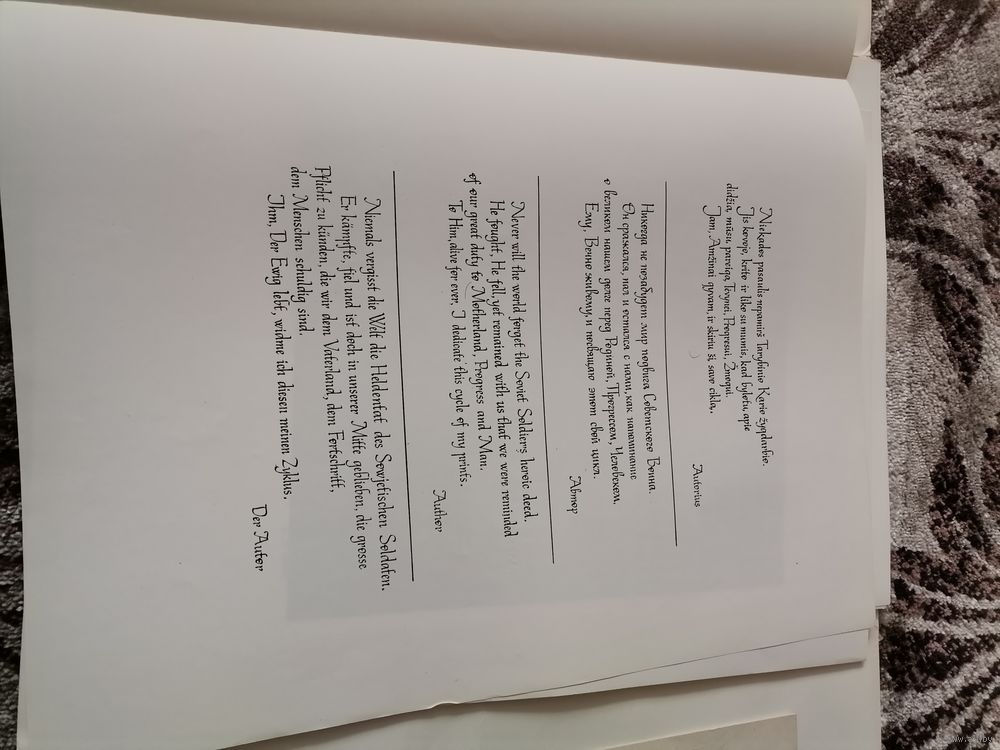 Niekados pasaulis nepamirš Tarybinio Kario žygdarbio.
Jis kovojo, krito ir liko su mumis, kad bylotų apie
didžią mūsų pareigą Tėvynei, Progresui, Žmogui.
Jam, Amžinai gyvam, ir skiriu šį savo ciklą.
Autorius
Никогда не позабудет мир подвига Советского Воина.
Он сражался, пал и остался с нами, как напоминание
о великом нашем долге перед Родиной, Прогрессом, Человеком.
Ему, Вечно живому, и посвящаю этот свой цикл.
Автор
Never will the world forget the Soviet Soldier's heroic deed.
He fought, He fell, yet remained with us that we were reminded
of our great duty to Motherland, Progress and Man.
To Him, alive for ever, I dedicate this cycle of my prints.
Author
Niemals vergisst die Welt die Heldentat des Sowjetischen Soldaten.
Er kämpfte, fiel und ist doch in unserer Mitte geblieben, die grosse
Pflicht zu künden die wir dem Vaterland, dem Fortschritt,
dem Menschen schuldig sind.
Ihm, Der Ewig lebt, widme ich diesen meinen Zyklus.
Der Autor